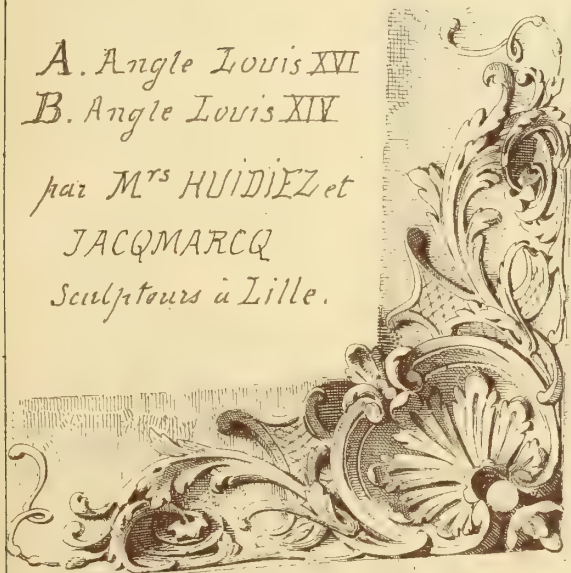 A. Angle Louis XVI
B. Angle Louis XIV
par Mrs HUIDIEZ et
JACQMARCQ
Sculpteurs à Lille.